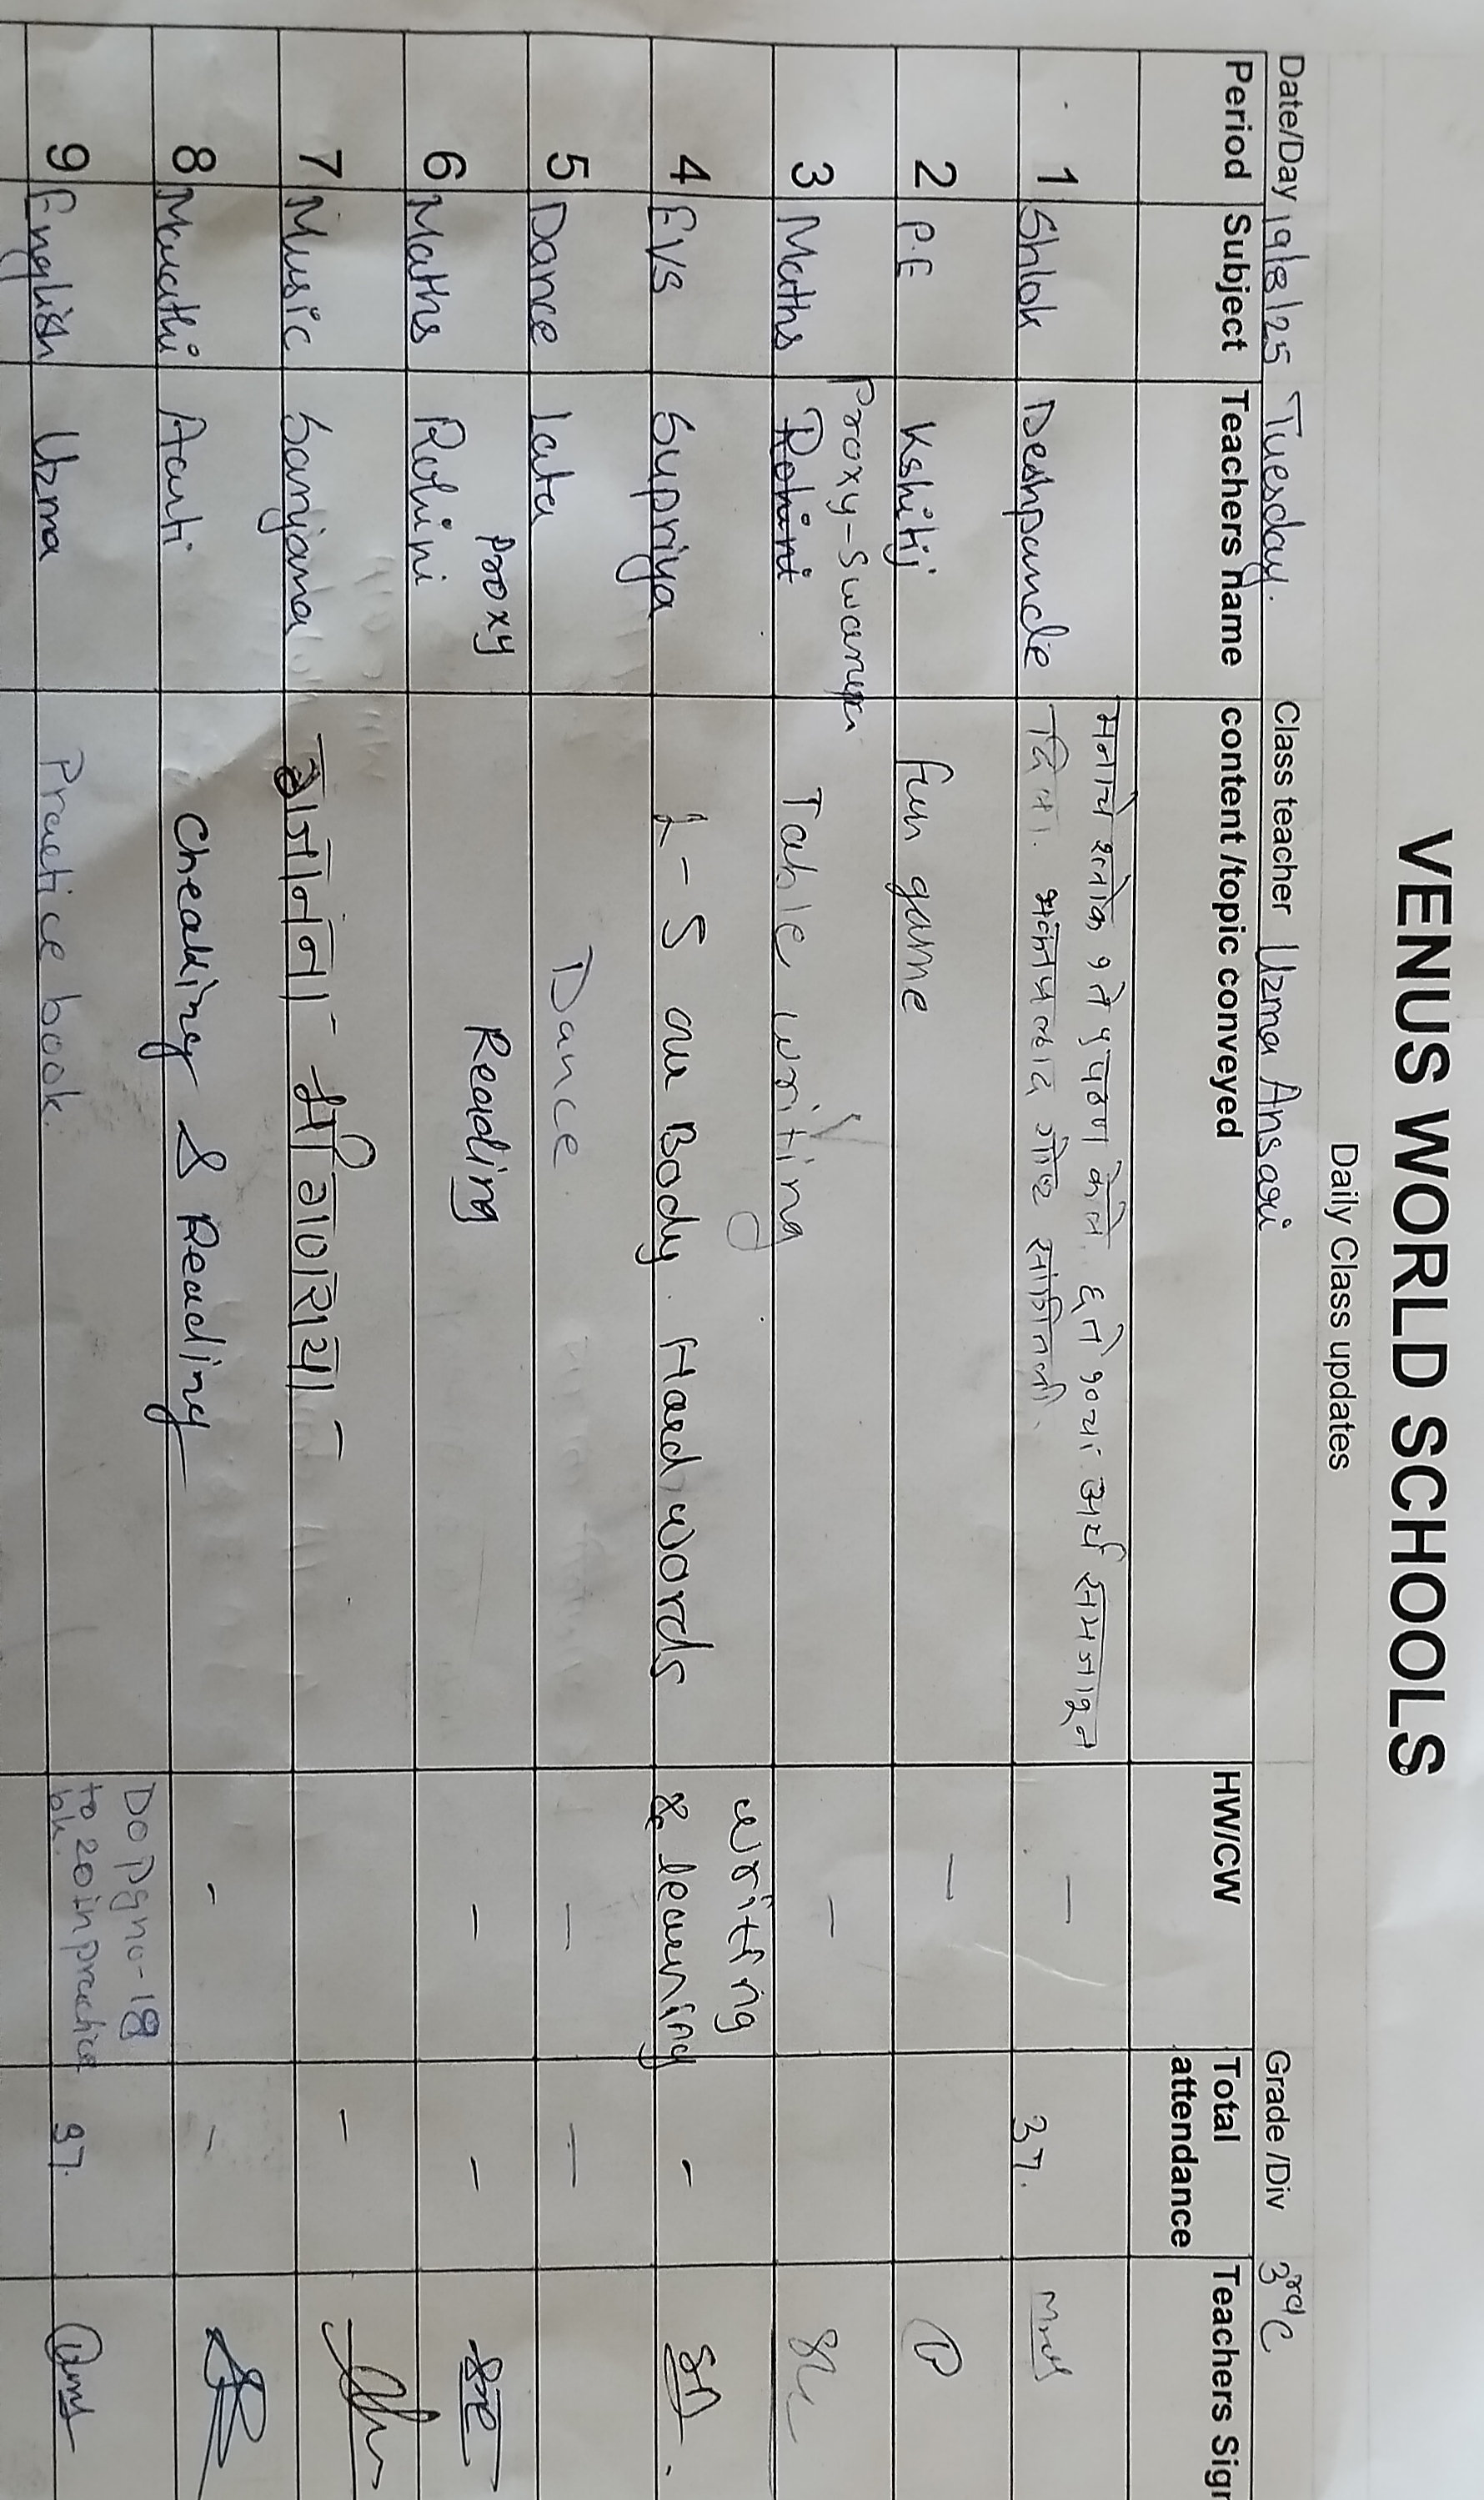 VENUS WORLD SCHOOLS
Daily Class updates
Date/Day 19/8/25 Tuesday. Class teacher Uzma Ansari Grade /Div 3rd C
Period Subject Teachers name content /topic conveyed HW/CW Total attendance Teachers Sign
1 Shlok Deshpande मनाचे श्लोक १ ते ५ पठण केले ६ ते १० चा अर्थ समजावून
दिला. गोष्ट सांगितली. - 37.
2 P.E Kshitij fun game -
Proxy-Swarupa
3 Maths Rohini Table writing -
writing
4 EVS Supriya L-5 our Body. Hard words & learning -
5 Dance lata Dance - -
Proxy
6 Maths Rohini Reading - -
7 Music Sanjana गजानना श्री गणराया - -
8 Marathi Aarti Cheaking & Reading - -
9 English Uzma Practice book. Do pgno-18
to 20 in practice
bk. 37.